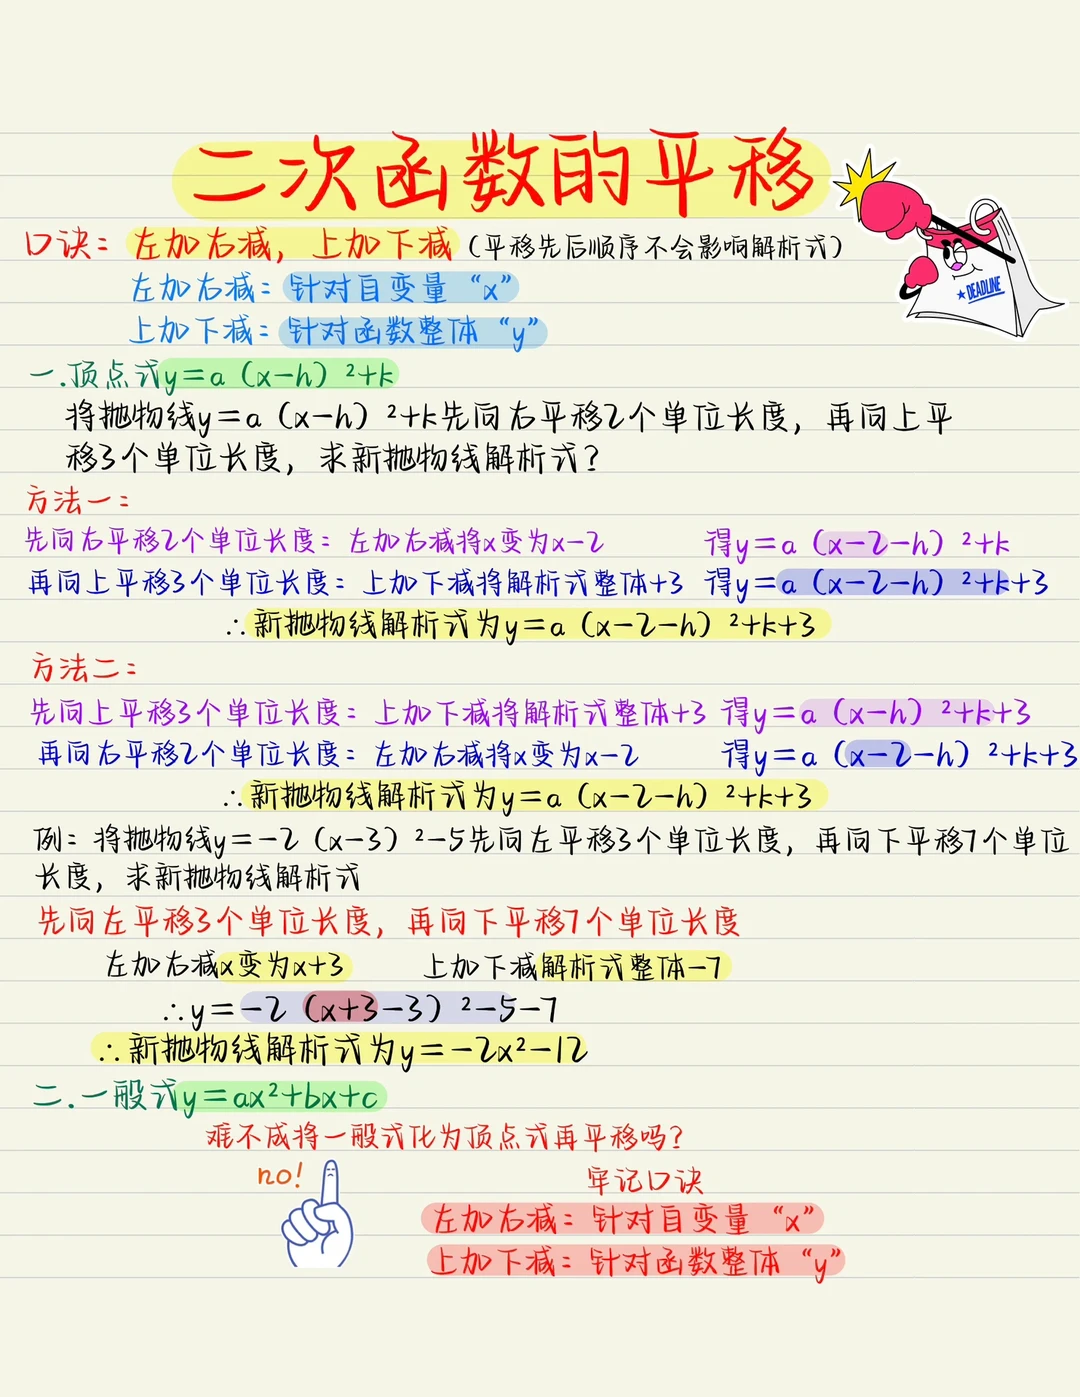 二次函数的平移
口诀：左加右减，上加下减（平移先后顺序不会影响解析式）
左加右减：针对自变量“x”
DEADLINE
上加下减：针对函数整体“y”
一.顶点式y=a（x-h）²+k
将抛物线y=a（x-h）²+k先向右平移2个单位长度，再向上平
移3个单位长度，求新抛物线解析式？
方法一：
先向右平移2个单位长度：左加右减将x变为x-2 得y=a（x-2-h）²+k
再向上平移3个单位长度：上加下减将解析式整体+3 得y=a（x-2-h）²+k+3
∴新抛物线解析式为y=a（x-2-h）²+k+3
方法二：
先向上平移3个单位长度：上加下减将解析式整体+3 得y=a（x-h）²+k+3
再向右平移2个单位长度：左加右减将x变为x-2 得y=a（x-2-h）²+k+3
∴新抛物线解析式为y=a（x-2-h）²+k+3
例：将抛物线y=-2（x-3）²-5先向左平移3个单位长度，再向下平移7个单位
长度，求新抛物线解析式
先向左平移3个单位长度，再向下平移7个单位长度
左加右减x变为x+3 上加下减解析式整体-7
∴y=-2（x+3-3）²-5-7
∴新抛物线解析式为y=-2x²-12
二.一般式y=ax²+bx+c
难不成将一般式化为顶点式再平移吗？
no!
牢记口诀
左加右减：针对自变量“x”
上加下减：针对函数整体“y”